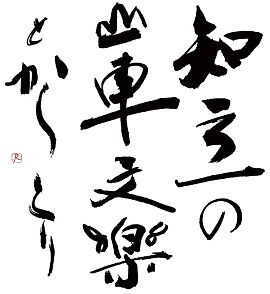 知立の
山車文楽
とからくり